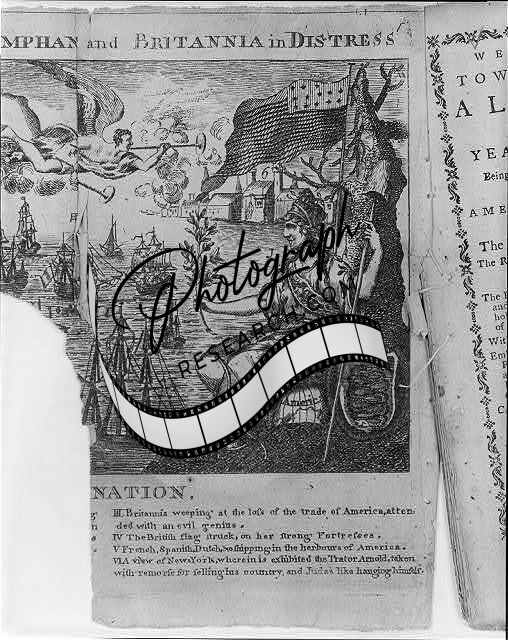 MPHAN and BRITANNIA in DISTRESS
6
Photograph
RESEARCH.CO
America
NATION.
III. Britannia weeping at the loss of the trade of America, atten-
ded with an evil genius.
IV The British flag struck, on her strong Fortresses.
V French, Spanish, Dutch, &c shipping in the harbours of America.
VI A view of New York, wherein is exhibited the Trator Arnold, taken
with remorse for selling his country, and Judas like hanging himself.
WE
TOW
AL
YEA
Being
AME
The
The R
The
and
ho
of
Wit
Em